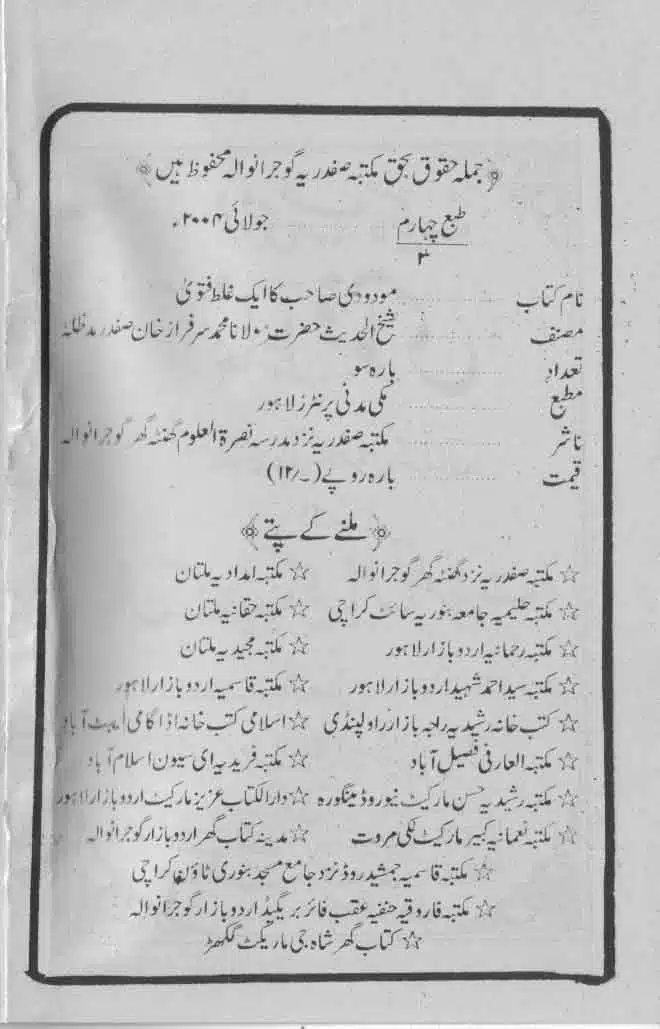 ﴿جملہ حقوق بحق مکتبہ صفدریہ گوجرانوالہ محفوظ ہیں﴾
طبع چہارم ............ جولائی ۲۰۰۴ء
۳
نام کتاب ............ مودودی صاحب کا ایک غلط فتویٰ
مصنف ............ شیخ الحدیث حضرت مولانا محمد سرفراز خان صفدر مدظلہ
تعداد ............ بارہ سو
مطبع ............ مکی مدنی پرنٹرز لاہور
ناشر ............ مکتبہ صفدریہ نزد مدرسہ نصرۃ العلوم گھنٹہ گھر گوجرانوالہ
قیمت ............ بارہ روپے (۔/۱۲)
﴿ملنے کے پتے﴾
☆ مکتبہ صفدریہ نزد گھنٹہ گھر گوجرانوالہ ☆ مکتبہ امدادیہ ملتان
☆ مکتبہ حلیمیہ جامعہ بنوریہ سائٹ کراچی ☆ مکتبہ حقانیہ ملتان
☆ مکتبہ رحمانیہ اردو بازار لاہور ☆ مکتبہ مجیدیہ ملتان
☆ مکتبہ سید احمد شہید اردو بازار لاہور ☆ مکتبہ قاسمیہ اردو بازار لاہور
☆ کتب خانہ رشیدیہ راجہ بازار راولپنڈی ☆ اسلامی کتب خانہ اڈا گامی ایبٹ آباد
☆ مکتبہ العارفی فصیل آباد ☆ مکتبہ فریدیہ ای سیون اسلام آباد
☆ مکتبہ رشیدیہ حسن مارکیٹ نیو روڈ مینگورہ ☆ دارالکتاب عزیز مارکیٹ اردو بازار لاہور
☆ مکتبہ نعمانیہ کبیر مارکیٹ لکی مروت ☆ مدینہ کتاب گھر اردو بازار گوجرانوالہ
☆ مکتبہ قاسمیہ جمشید روڈ نزد جامع مسجد بنوری ٹاؤن کراچی
☆ مکتبہ فاروقیہ حنفیہ عقب فائر بریگیڈ اردو بازار گوجرانوالہ
☆ کتاب گھر شاہ جی مارکیٹ گکھڑ